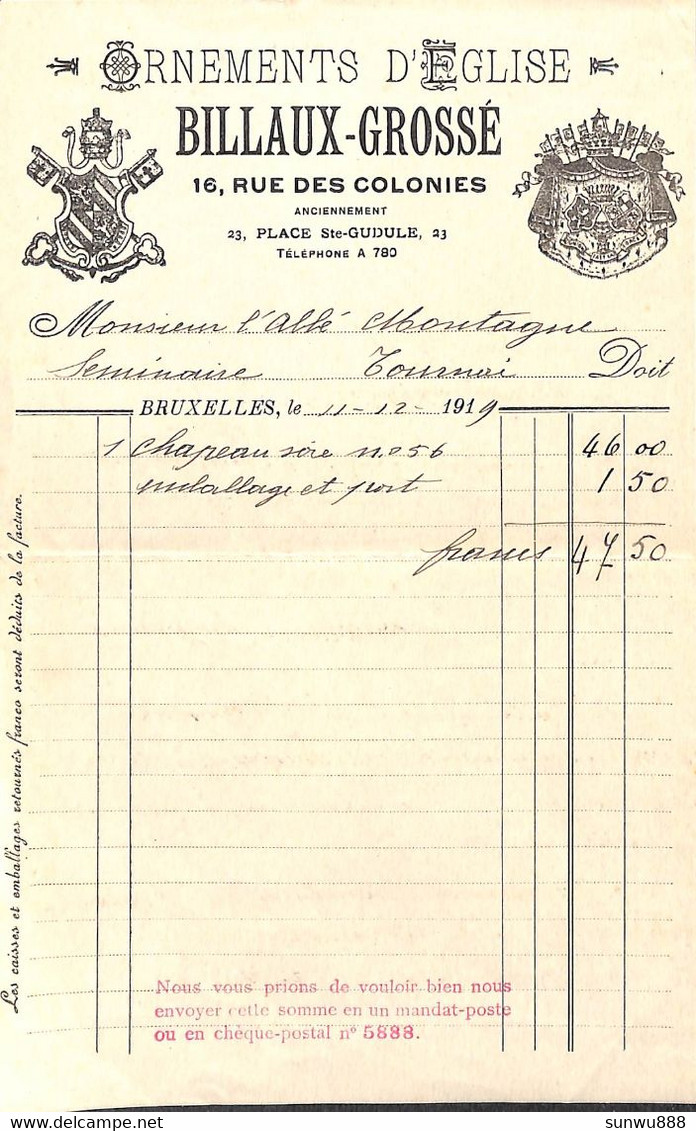 ORNEMENTS D'EGLISE
BILLAUX-GROSSÉ
16, RUE DES COLONIES
ANCIENNEMENT
23, PLACE Ste-GUDULE, 23
TÉLÉPHONE A 780
Monsieur l'Abbé Montagne
Seminaire Tournai Doit
BRUXELLES, le 11-12-1919
1 chapeau soie no 56 46 00
emballage et port 1 50
francs 47 50
Les caisses et emballages retournés franco seront déduits de la facture.
Nous vous prions de vouloir bien nous
envoyer cette somme en un mandat-poste
ou en chèque-postal n° 5888.
delcampe.net
sunwu888